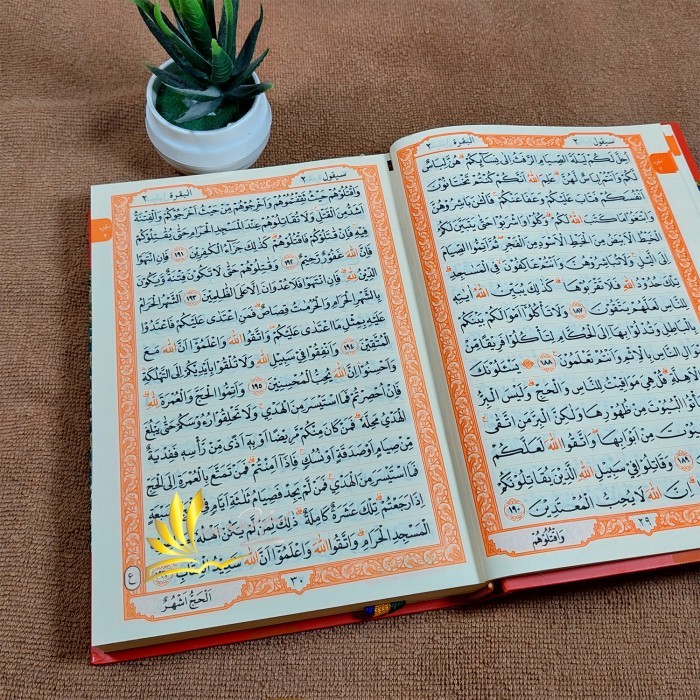 سيقول ٢ البقرة ٢
اُحِلَّ لَكُمْ لَيْلَةَ الصِّيَامِ الرَّفَثُ اِلٰى نِسَآئِكُمْ هُنَّ لِبَاسٌ
لَّكُمْ وَاَنْتُمْ لِبَاسٌ لَّهُنَّ عَلِمَ اللّٰهُ اَنَّكُمْ كُنْتُمْ تَخْتَانُوْنَ
اَنْفُسَكُمْ فَتَابَ عَلَيْكُمْ وَعَفَا عَنْكُمْ فَالْئٰنَ بَاشِرُوْهُنَّ
وَابْتَغُوْا مَا كَتَبَ اللّٰهُ لَكُمْ وَكُلُوْا وَاشْرَبُوْا حَتّٰى يَتَبَيَّنَ لَكُمُ
الْخَيْطُ الْاَبْيَضُ مِنَ الْخَيْطِ الْاَسْوَدِ مِنَ الْفَجْرِ ثُمَّ اَتِمُّوا الصِّيَامَ
اِلَى الَّيْلِ وَلَا تُبَاشِرُوْهُنَّ وَاَنْتُمْ عٰكِفُوْنَ فِى الْمَسٰجِدِ
تِلْكَ حُدُوْدُ اللّٰهِ فَلَا تَقْرَبُوْهَا كَذٰلِكَ يُبَيِّنُ اللّٰهُ اٰيٰتِهٖ
لِلنَّاسِ لَعَلَّهُمْ يَتَّقُوْنَ ١٨٧ وَلَا تَأْكُلُوْا اَمْوَالَكُمْ بَيْنَكُمْ
بِالْبَاطِلِ وَتُدْلُوْا بِهَا اِلَى الْحُكَّامِ لِتَأْكُلُوْا فَرِيْقًا مِّنْ
النَّاسِ بِالْاِثْمِ وَاَنْتُمْ تَعْلَمُوْنَ ١٨٨ يَسْئَلُوْنَكَ
الْاَهِلَّةِ قُلْ هِىَ مَوَاقِيْتُ لِلنَّاسِ وَالْحَجِّ وَلَيْسَ الْبِرُّ
الْبُيُوْتَ مِنْ ظُهُوْرِهَا وَلٰكِنَّ الْبِرَّ مَنِ اتَّقٰى
الْبُيُوْتَ مِنْ اَبْوَابِهَا وَاتَّقُوا اللّٰهَ لَعَلَّكُمْ
١٨٩ وَقَاتِلُوْا فِىْ سَبِيْلِ اللّٰهِ الَّذِيْنَ يُقَاتِلُوْنَكُمْ
اِنَّ اللّٰهَ لَا يُحِبُّ الْمُعْتَدِيْنَ ١٩٠
٢٩
وَاقْتُلُوْهُمْ
سيقول ٢ البقرة ٢
وَاقْتُلُوْهُمْ حَيْثُ ثَقِفْتُمُوْهُمْ وَاَخْرِجُوْهُمْ مِّنْ حَيْثُ اَخْرَجُوْكُمْ وَالْفِتْنَةُ
اَشَدُّ مِنَ الْقَتْلِ وَلَا تُقَاتِلُوْهُمْ عِنْدَ الْمَسْجِدِ الْحَرَامِ حَتّٰى يُقَاتِلُوْكُمْ
فِيْهِ فَاِنْ قَاتَلُوْكُمْ فَاقْتُلُوْهُمْ كَذٰلِكَ جَزَآءُ الْكٰفِرِيْنَ ١٩١ فَاِنِ انْتَهَوْا
فَاِنَّ اللّٰهَ غَفُوْرٌ رَّحِيْمٌ ١٩٢ وَقٰتِلُوْهُمْ حَتّٰى لَا تَكُوْنَ فِتْنَةٌ وَّيَكُوْنَ
الدِّيْنُ لِلّٰهِ فَاِنِ انْتَهَوْا فَلَا عُدْوَانَ اِلَّا عَلَى الظّٰلِمِيْنَ ١٩٣ اَلشَّهْرُ الْحَرَامُ
بِالشَّهْرِ الْحَرَامِ وَالْحُرُمٰتُ قِصَاصٌ فَمَنِ اعْتَدٰى عَلَيْكُمْ فَاعْتَدُوْا
عَلَيْهِ بِمِثْلِ مَا اعْتَدٰى عَلَيْكُمْ وَاتَّقُوا اللّٰهَ وَاعْلَمُوْا اَنَّ اللّٰهَ مَعَ
الْمُتَّقِيْنَ ١٩٤ وَاَنْفِقُوْا فِىْ سَبِيْلِ اللّٰهِ وَلَا تُلْقُوْا بِاَيْدِيْكُمْ اِلَى التَّهْلُكَةِ
وَاَحْسِنُوْا اِنَّ اللّٰهَ يُحِبُّ الْمُحْسِنِيْنَ ١٩٥ وَاَتِمُّوا الْحَجَّ وَالْعُمْرَةَ لِلّٰهِ
فَاِنْ اُحْصِرْتُمْ فَمَا اسْتَيْسَرَ مِنَ الْهَدْىِ وَلَا تَحْلِقُوْا رُءُوْسَكُمْ حَتّٰى يَبْلُغَ
الْهَدْىُ مَحِلَّهٗ فَمَنْ كَانَ مِنْكُمْ مَّرِيْضًا اَوْ بِهٖ اَذًى مِّنْ رَّأْسِهٖ فَفِدْيَةٌ
مِّنْ صِيَامٍ اَوْ صَدَقَةٍ اَوْ نُسُكٍ فَاِذَا اَمِنْتُمْ فَمَنْ تَمَتَّعَ بِالْعُمْرَةِ اِلَى الْحَجِّ
فَمَا اسْتَيْسَرَ مِنَ الْهَدْىِ فَمَنْ لَّمْ يَجِدْ فَصِيَامُ ثَلٰثَةِ اَيَّامٍ وَسَبْعَةٍ
اِذَا رَجَعْتُمْ تِلْكَ عَشَرَةٌ كَامِلَةٌ ذٰلِكَ لِمَنْ لَّمْ يَكُنْ اَهْلُهٗ
الْمَسْجِدِ الْحَرَامِ وَاتَّقُوا اللّٰهَ وَاعْلَمُوْا اَنَّ اللّٰهَ شَدِيْدُ الْعِقَابِ
ع
٣٠
اَلْحَجُّ اَشْهُرٌ